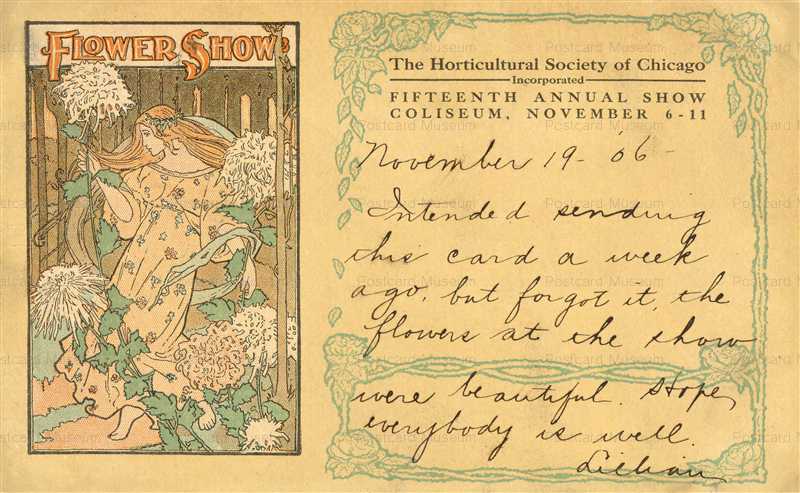 FLOWER SHOW
The Horticultural Society of Chicago
Incorporated
FIFTEENTH ANNUAL SHOW
COLISEUM, NOVEMBER 6-11
November 19-06-
Intended sending
this card a week
ago, but forgot it, the
flowers at the show
were beautiful. Hope
everybody is well.
Lillian
Postcard Museum